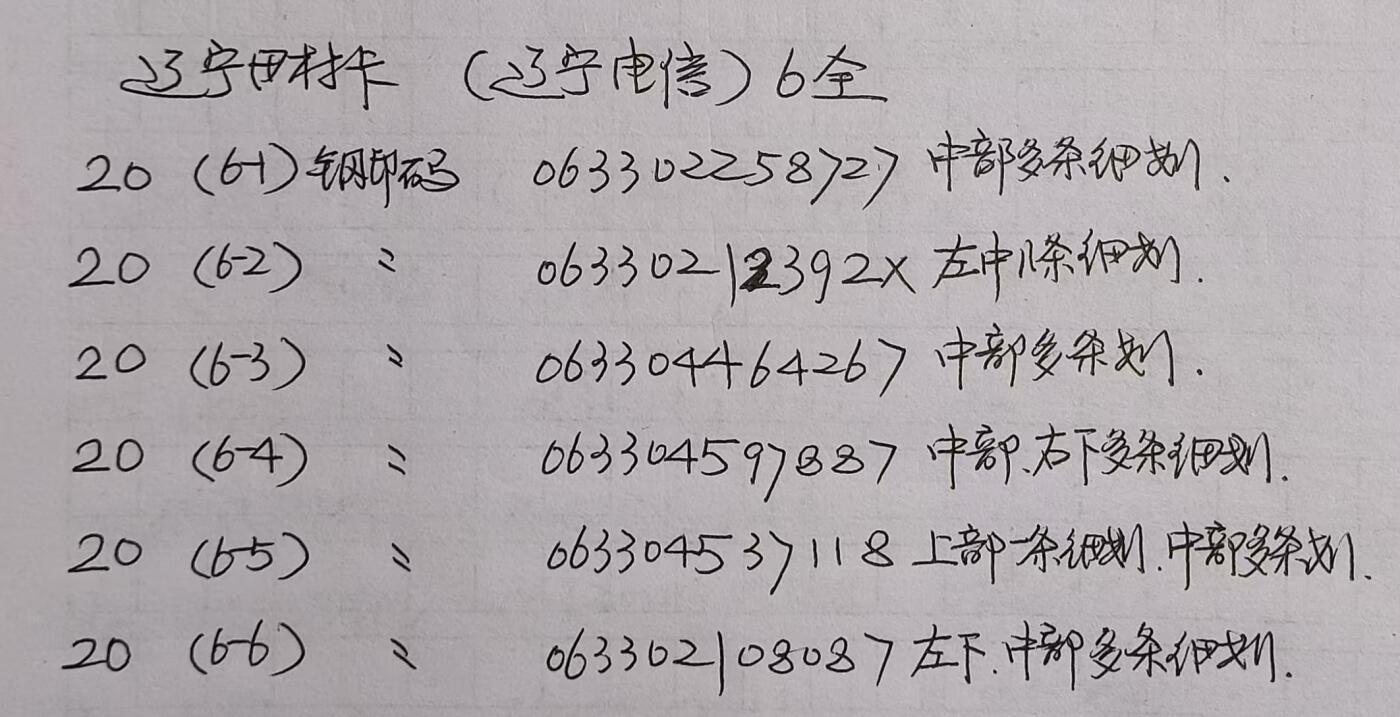 辽宁田村卡 (辽宁电信) 6全
20 (6-1) 钢印码 063302258727 中部多条细划.
20 (6-2) 〃 06330212392X 左中1条细划.
20 (6-3) 〃 063304464267 中部多条划.
20 (6-4) 〃 063304597887 中部、右下多条细划.
20 (6-5) 〃 063304537118 上部一条细划.中部多条划.
20 (6-6) 〃 063302108087 左下.中部多条细划.